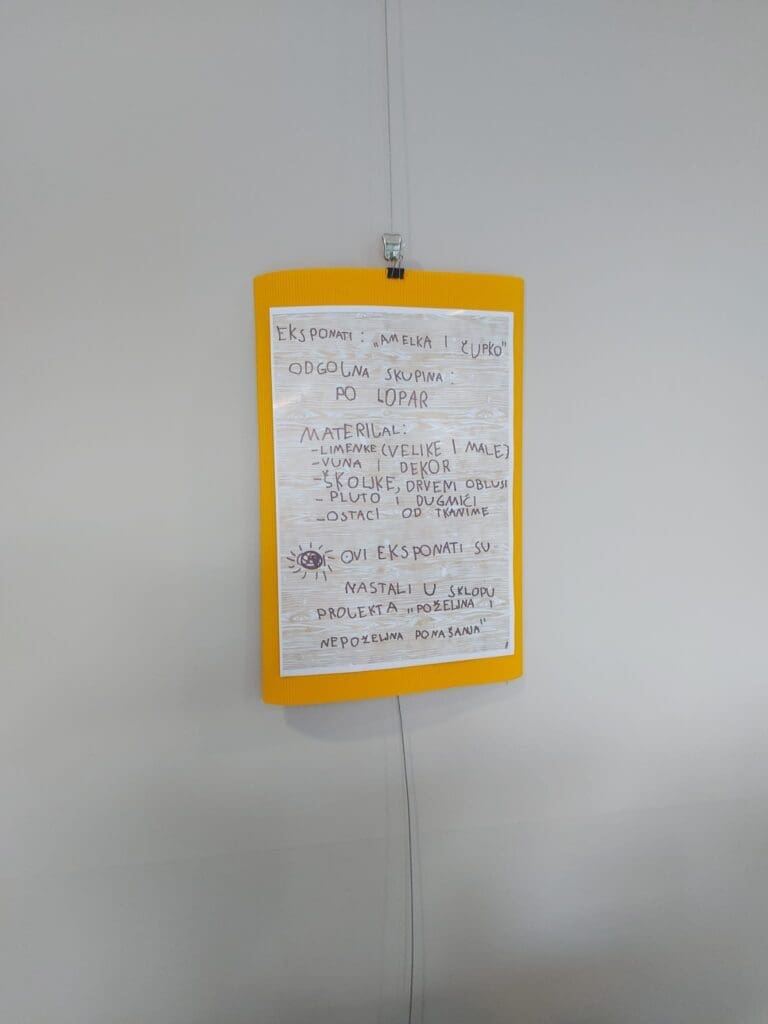 EKSPONATI: „AMELKA I ČUPKO"
ODGOJNA SKUPINA:
PO LOPAR
MATERIJAL:
-LIMENKE (VELIKE I MALE)
-VUNA I DEKOR
-ŠKOLJKE, DRVENI OBLUSI
-PLUTO I DUGMIĆI
-OSTACI OD TKANIME
OVI EKSPONATI SU
NASTALI U SKLOPU
PROJEKTA „POŽELJNA I
NEPOŽELJNA PONAŠANJA"